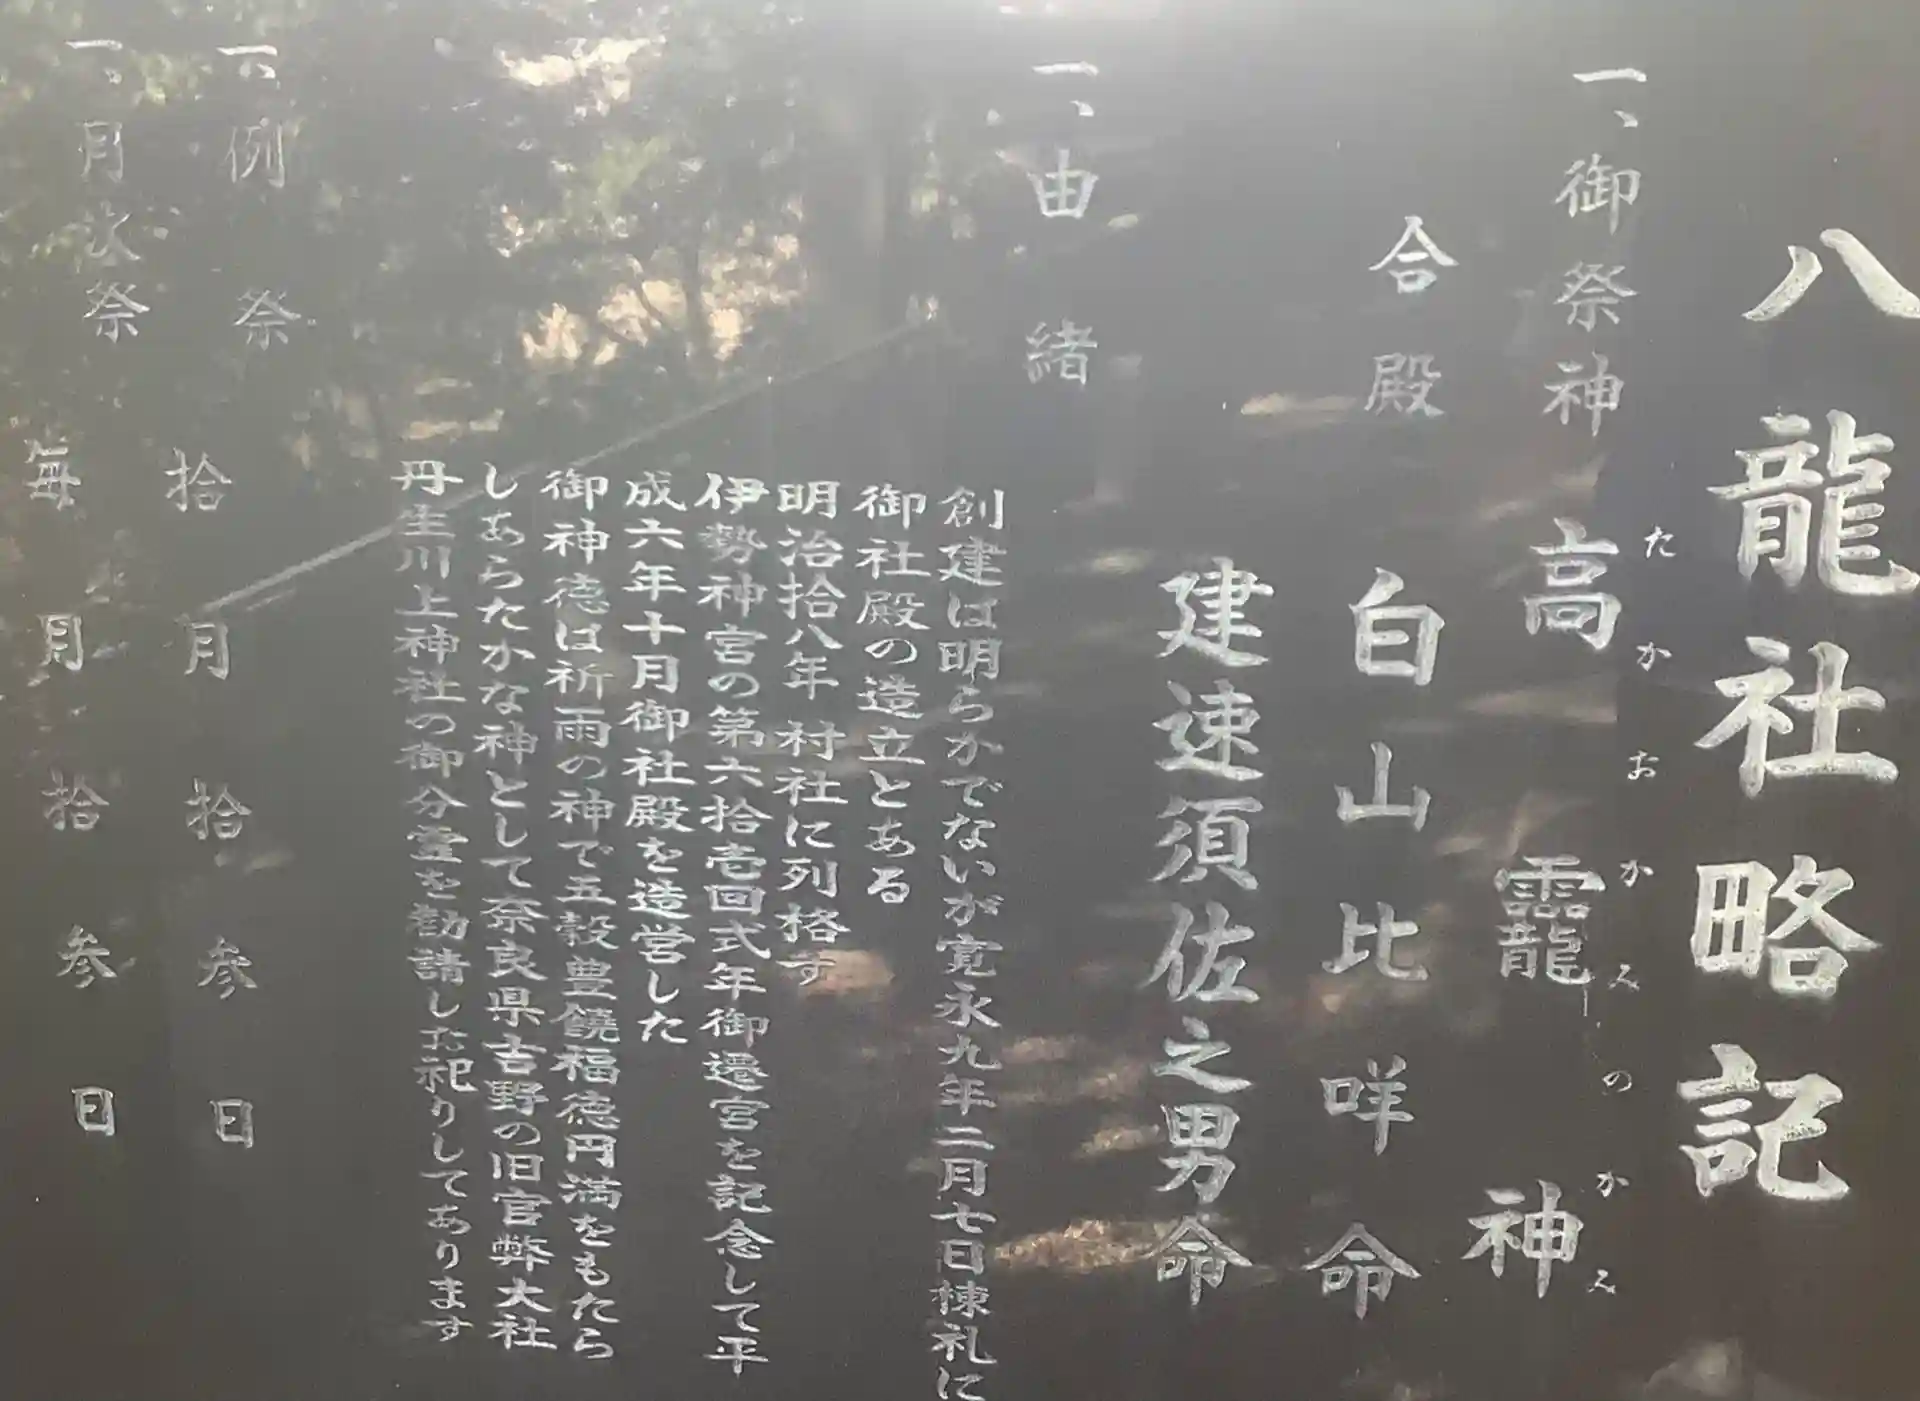 八龍社略記
一、御祭神 高龗神
たかおかみのかみ
合殿 白山比咩命
建速須佐之男命
一、由緒
創建は明らかでないが寛永九年二月七日棟礼に
御社殿の造立とある
明治拾八年 村社に列格す
伊勢神宮の第六拾壱回式年御遷宮を記念して平
成六年十月御社殿を造営した
御神徳は祈雨の神で五穀豊饒福徳円満をもたら
しあらたかな神として奈良県吉野の旧官弊大社
丹生川上神社の御分霊を勧請しお祀りしてあります
一、例祭 拾月拾参日
一、月次祭 毎月拾参日